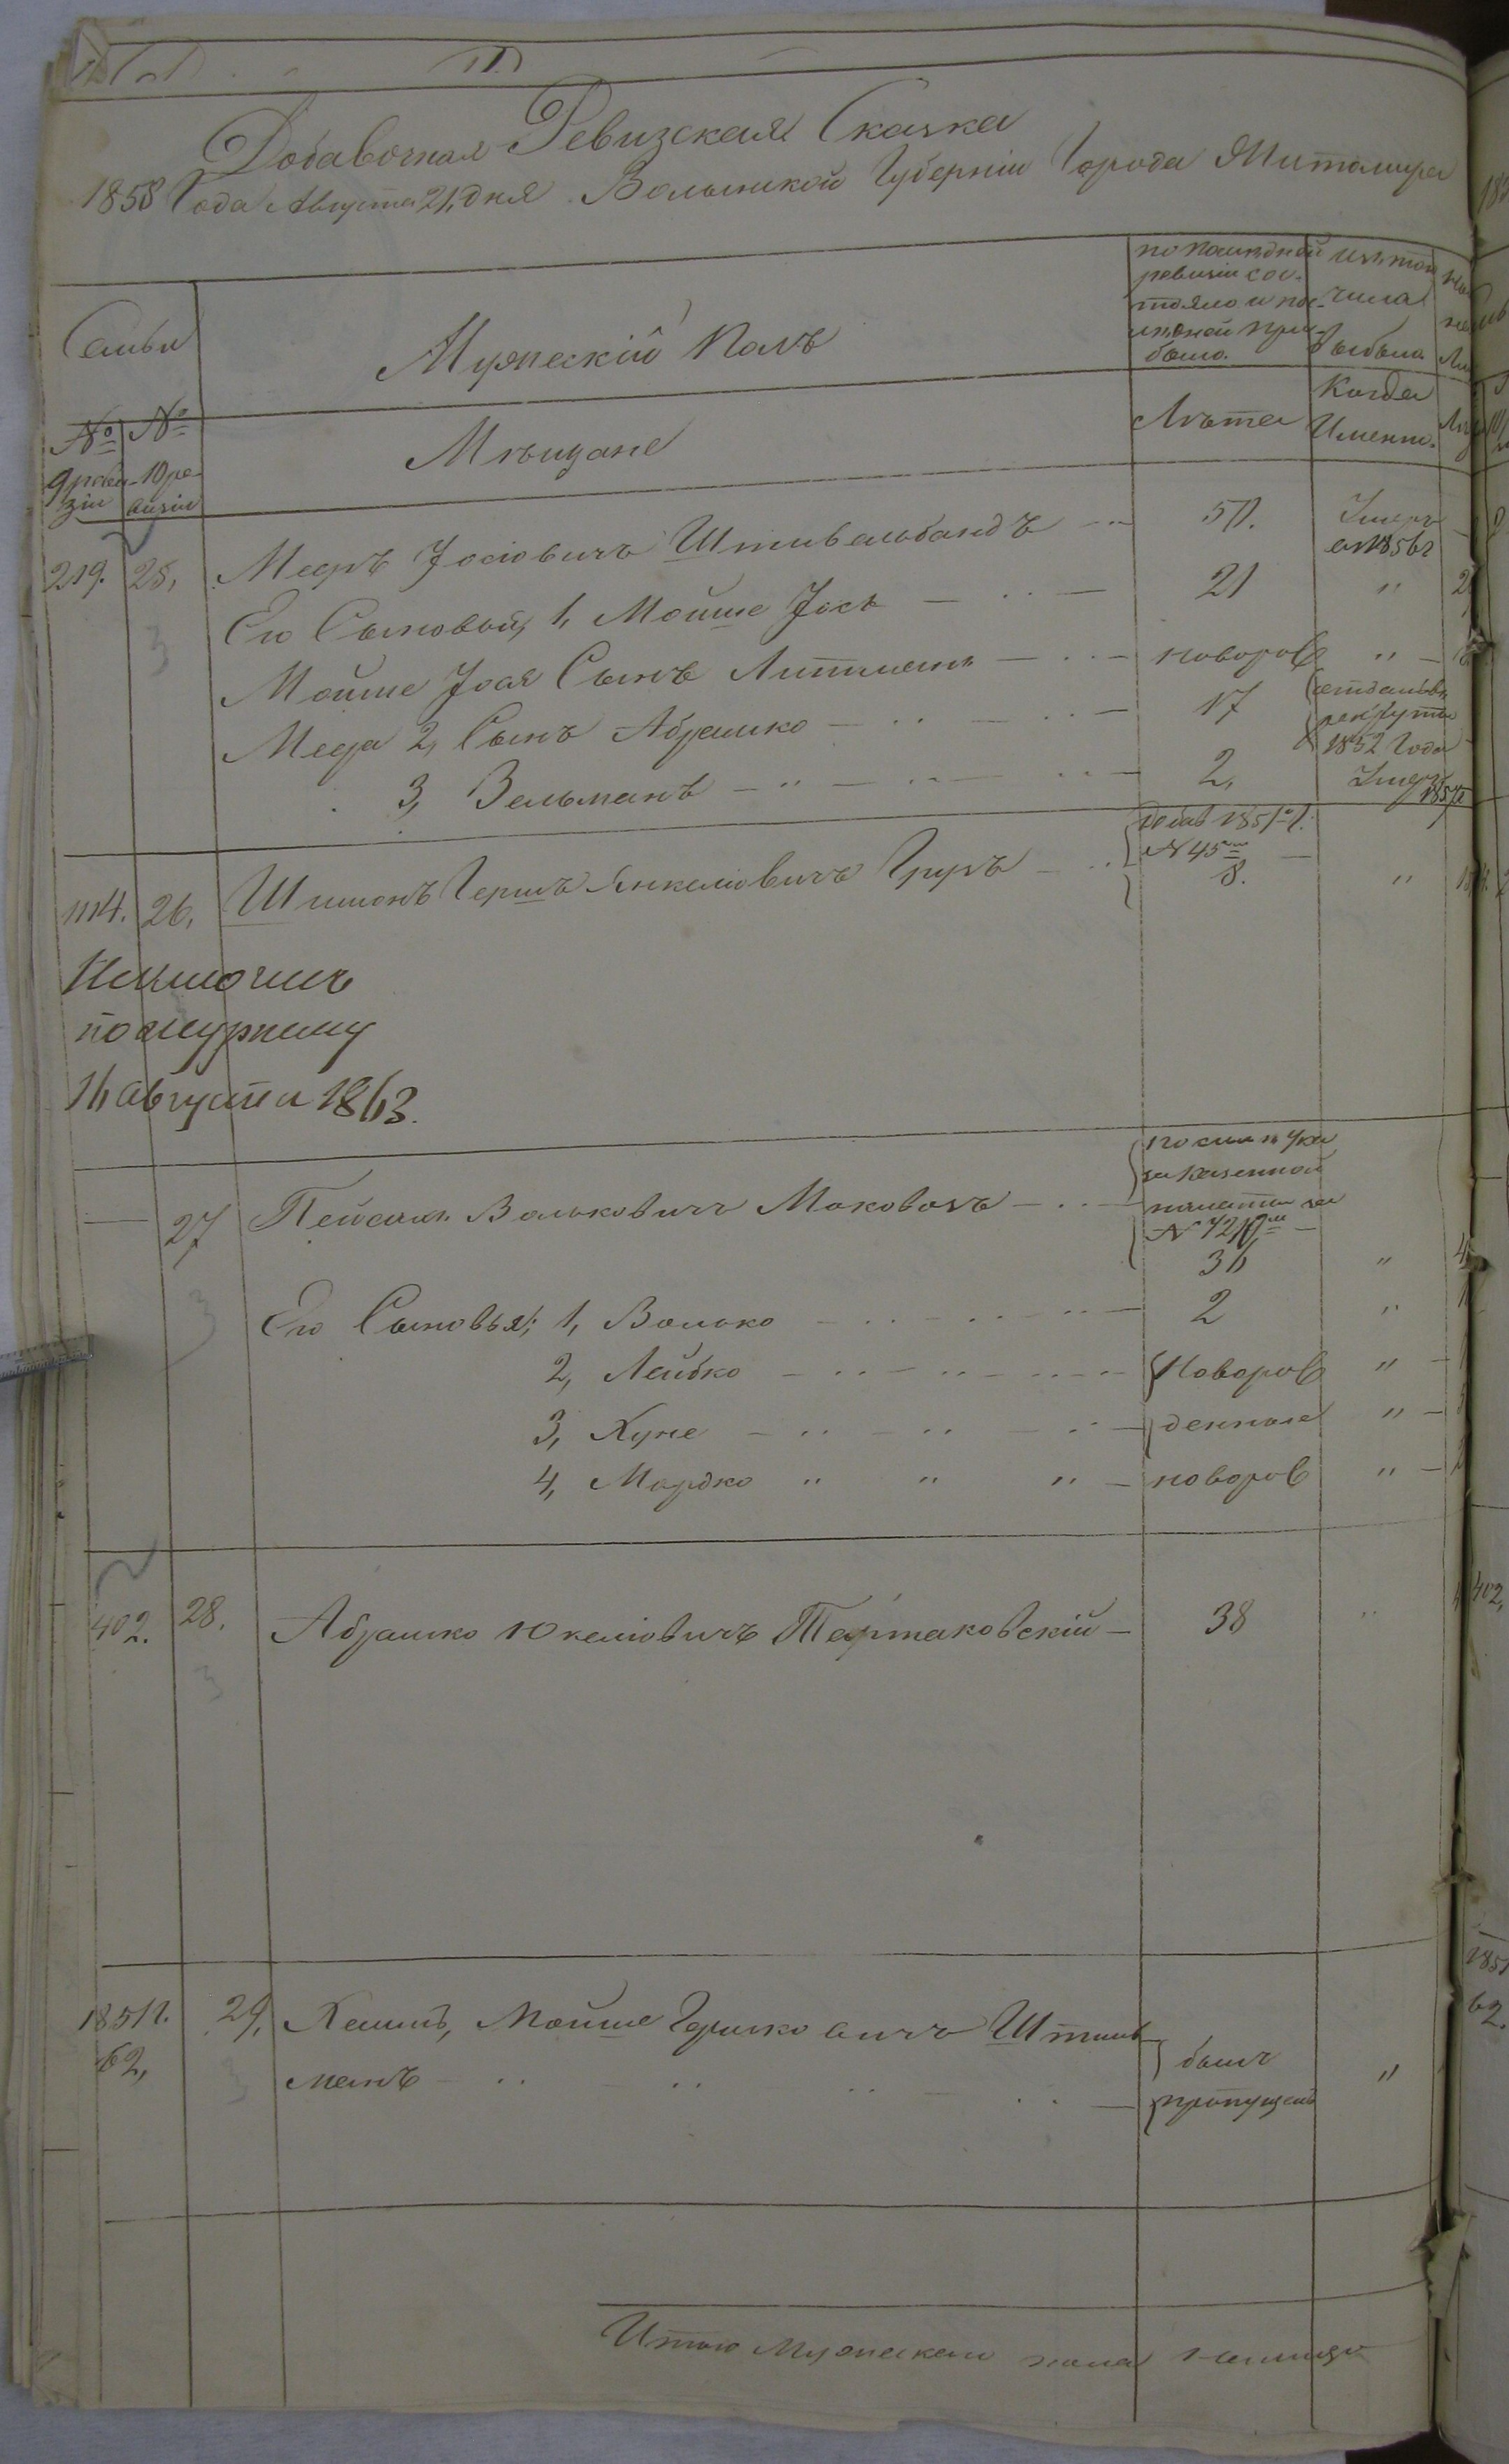 Добавочная Ревизская Сказка
1858 Года Августа 21, дня Волынской Губерніи Города Житомира
Семьи
Мужескій Полъ
по последней ревизіи состояло и после оной прибыло.
изъ того числа выбыло
№ 9 ревизіи
№ 10 ревизіи
Мещане
Лета
Когда Именно.
219. 25, Мееръ Іосіовичъ Штивельбандъ 50. Умеръ въ 1856 г
Его Сыновья, 1, Мойше Іось 21 "
Мойше Іося Сынъ Литманъ новорож "
Меера 2, Сынъ Абрамко 17 отданъ въ рекруты 1852 Года
3, Зельманъ 2, Умеръ 1857 г
1114. 26, Шимонъ Гершъ Янкеліовичъ Груръ добав 1851 г. № 45 8. "
Исключенъ
по журналу
16 августа 1863.
27 Пейсахъ Вольковичъ Маковозъ по силе указа Казенной палаты за № 7210 36 "
Его Сыновья; 1, Волько 2 "
2, Лейбко Новорож "
3, Хуне денные "
4, Мордко " " " новорож "
402. 28. Абрамко Юкеліовичъ Тартаковскій 38 "
1851 г. 29, Хаимъ, Мойше Гершковичъ Штильманъ былъ пропущенъ "
62,
Итого Мужескаго пола налицо